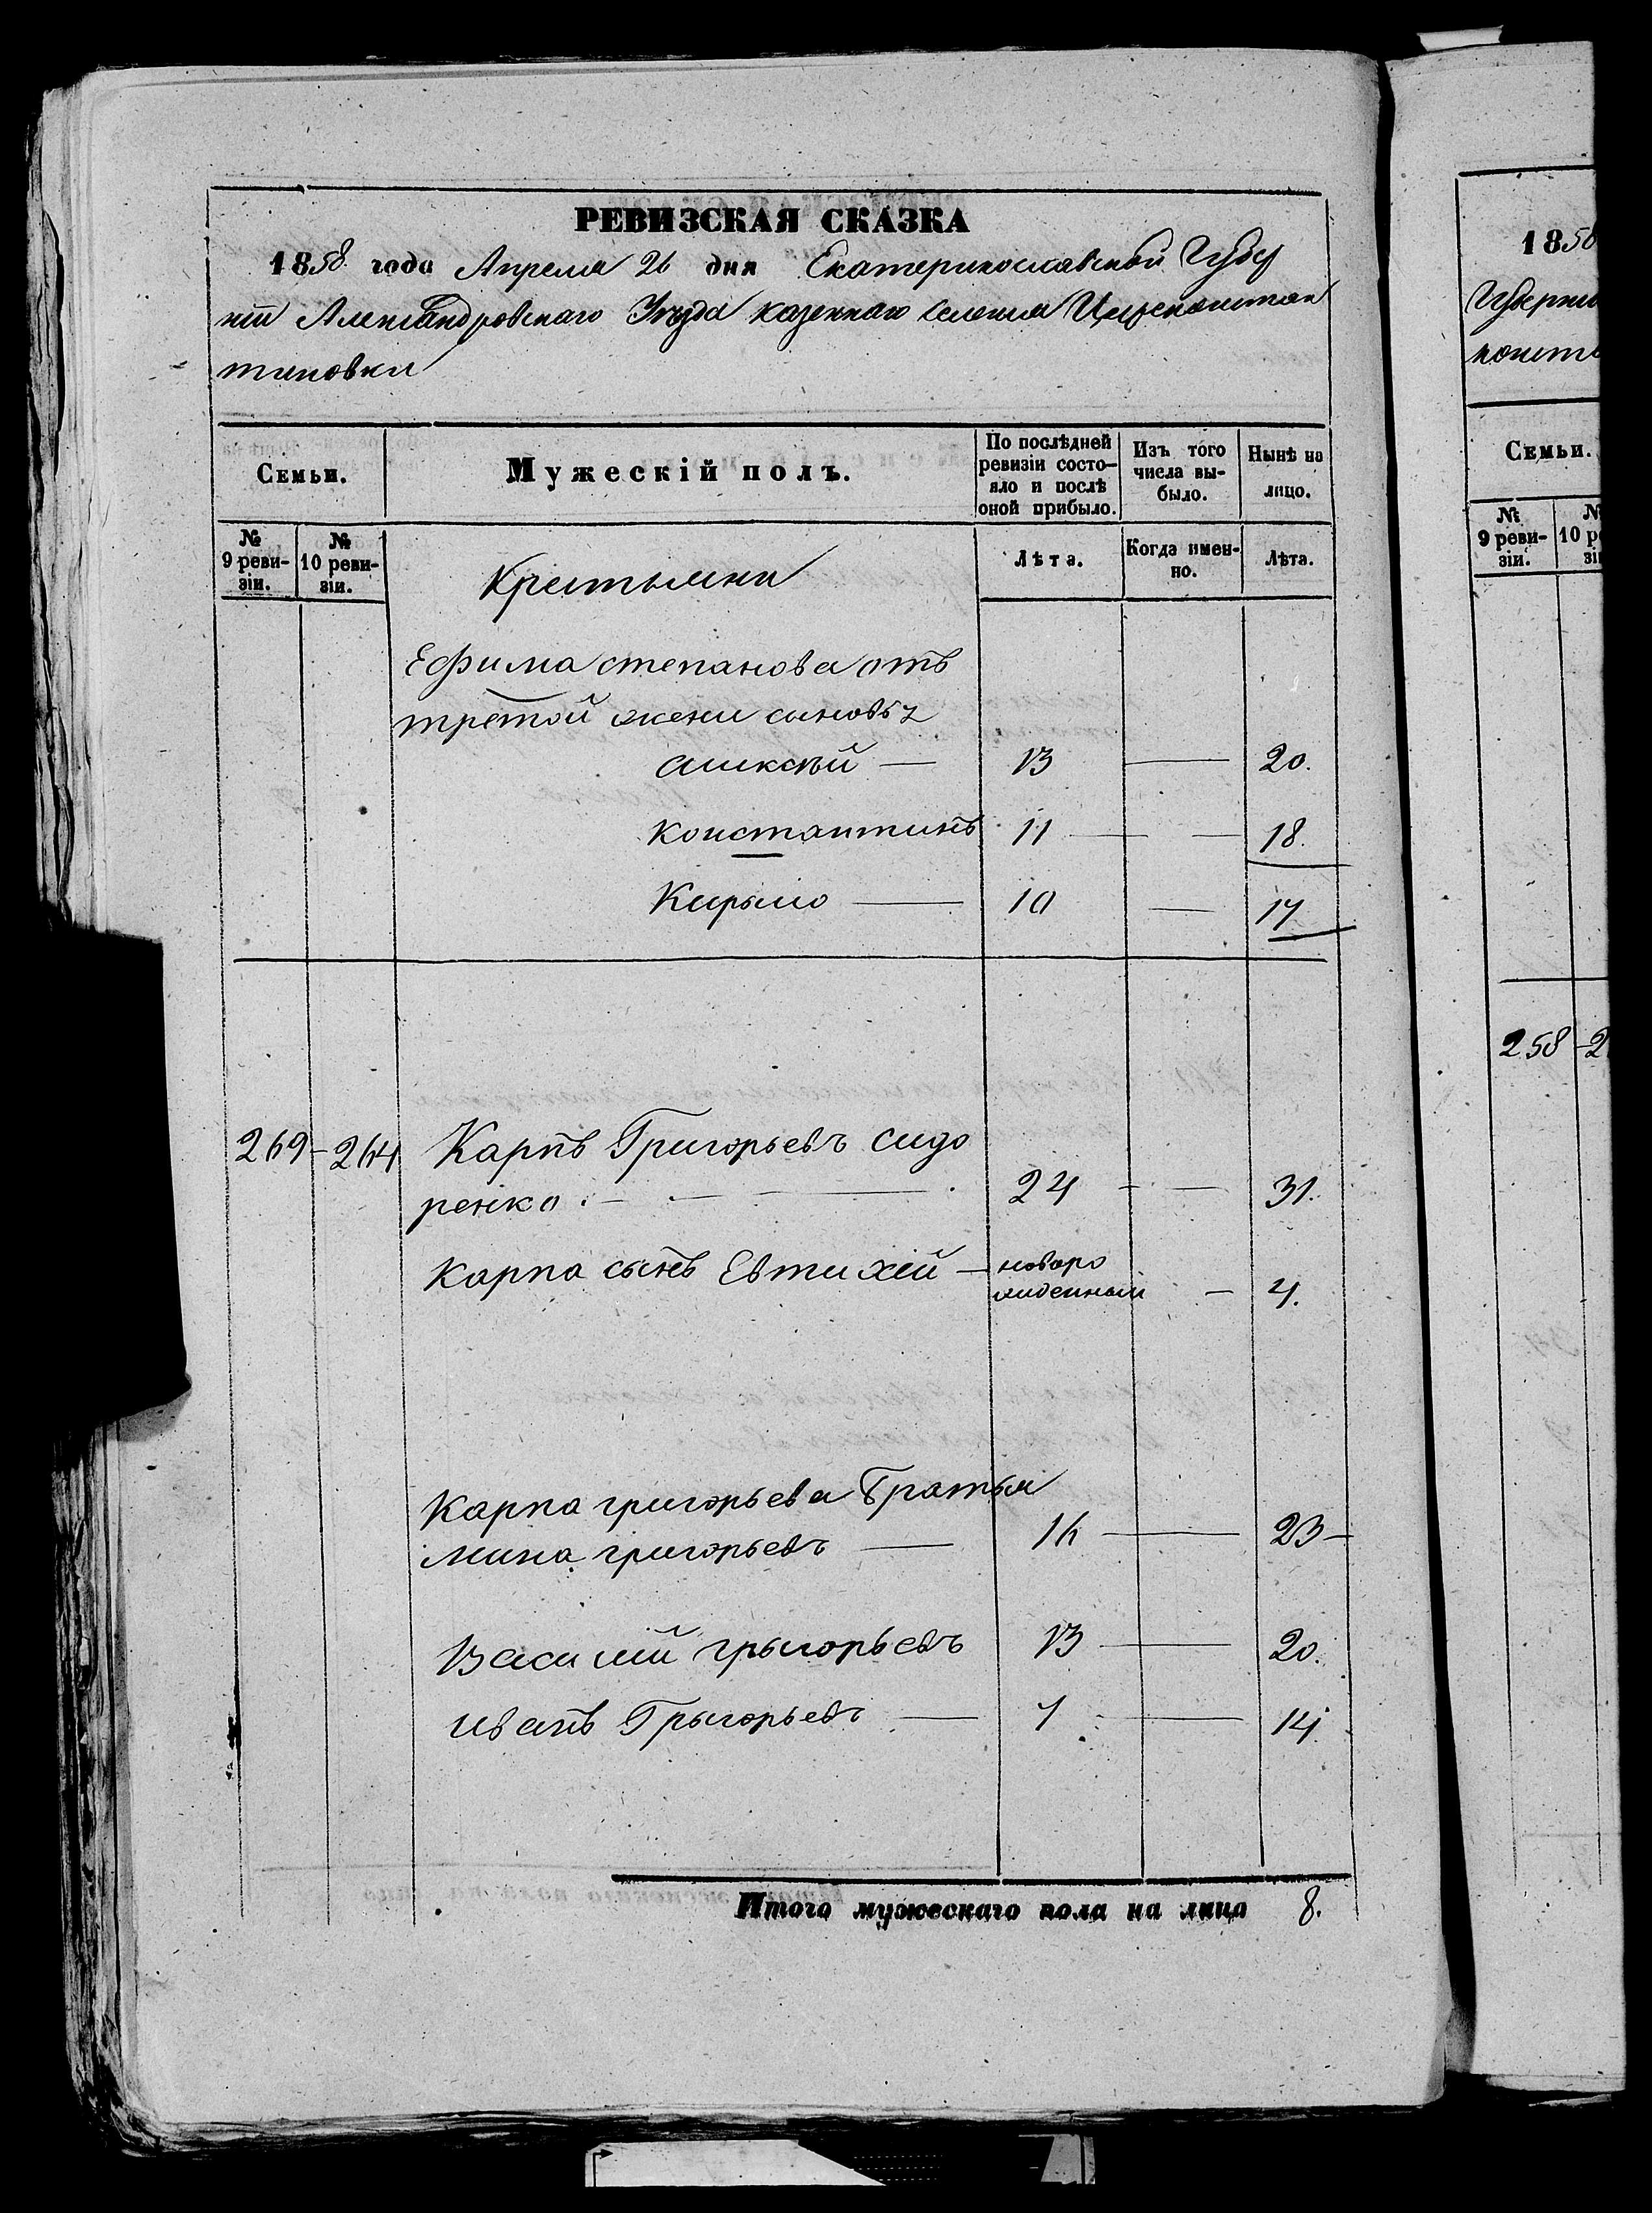 РЕВИЗСКАЯ СКАЗКА
1858 года Апреля 26 дня Екатеринославской Губер
нїи Александровскаго Уѣзда казеннаго селенія Цареконстан
тиновки
Семьи.
Мужескій полъ.
По послѣдней ревизіи состо-
яло и послѣ оной прибыло.
Изъ того числа вы-
было.
Нынѣ на лицо.
№ 9 реви-
зіи.
№ 10 реви-
зіи.
Крестьяни
Лѣта.
Когда имен-
но.
Лѣта.
Ефима степанова отъ
третой жени сыновъя
аликсѣй — 13 — 20.
Константинъ 11 — — 18.
Кирыло — 10 — 17
269 – 264 Карпъ Григорьевъ сидо
ренко . — — — 24 – — 31.
Карпа сынъ Евтихій — новоро
жденный — 4.
Карпа григорьева Братья
мина григорьевъ — 16 — 23 –
Василій грыгорьевъ 13 — 20.
иванъ Грыгорьевъ — 7 — 14.
Итого мужескаго пола на лицо 8.
1858
Губерні
Семьи.
№ 9 реви-
зіи.
258 – 2